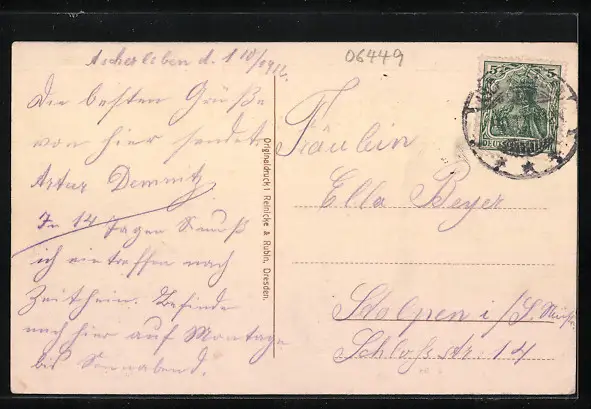 Aschersleben d. 1 10/
06449
Die besten Grüße
von hier sendet
Artur Demnitz
In 14 Tagen
ich eintreffen nach
Zeithain. Befinde
mich hier auf Montage
bis Sonnabend.
Originaldruck! Reinicke & Rubin, Dresden.
5 5
Fräulein
Ella Beyer
Stolpen i/S.
Schlossstr. 14